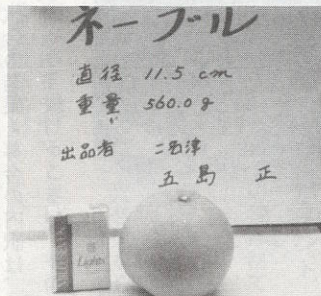 ネーブル
直径 11.5 cm
重量 560.0 g
出品者 二名津
五島 正